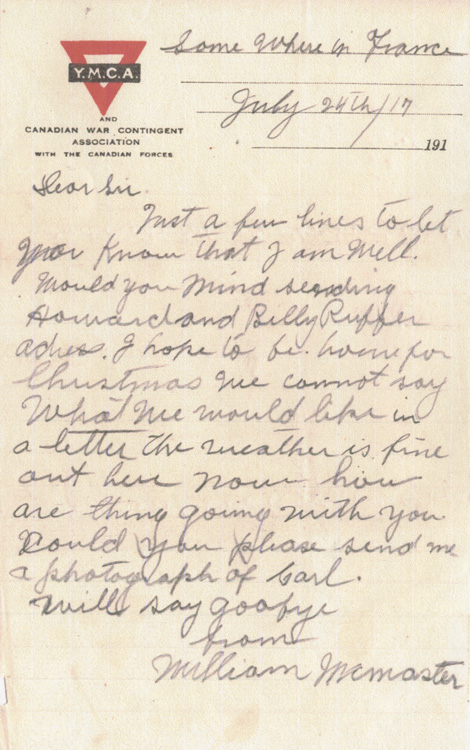 Y.M.C.A.
AND
CANADIAN WAR CONTINGENT
ASSOCIATION
WITH THE CANADIAN FORCES
Some Where in France
July 24th/17
191
Dear Sir.
Just a few lines to let
you know that I am well.
Would you mind sending
Howard and Billy Puffer
adress. I hope to be home for
Christmas we cannot say
What we would like in
a letter the weather is fine
out here now how
are thing going with you
Could you please send me
a photograph of Carl.
Will say goobye
from
William Mcmaster